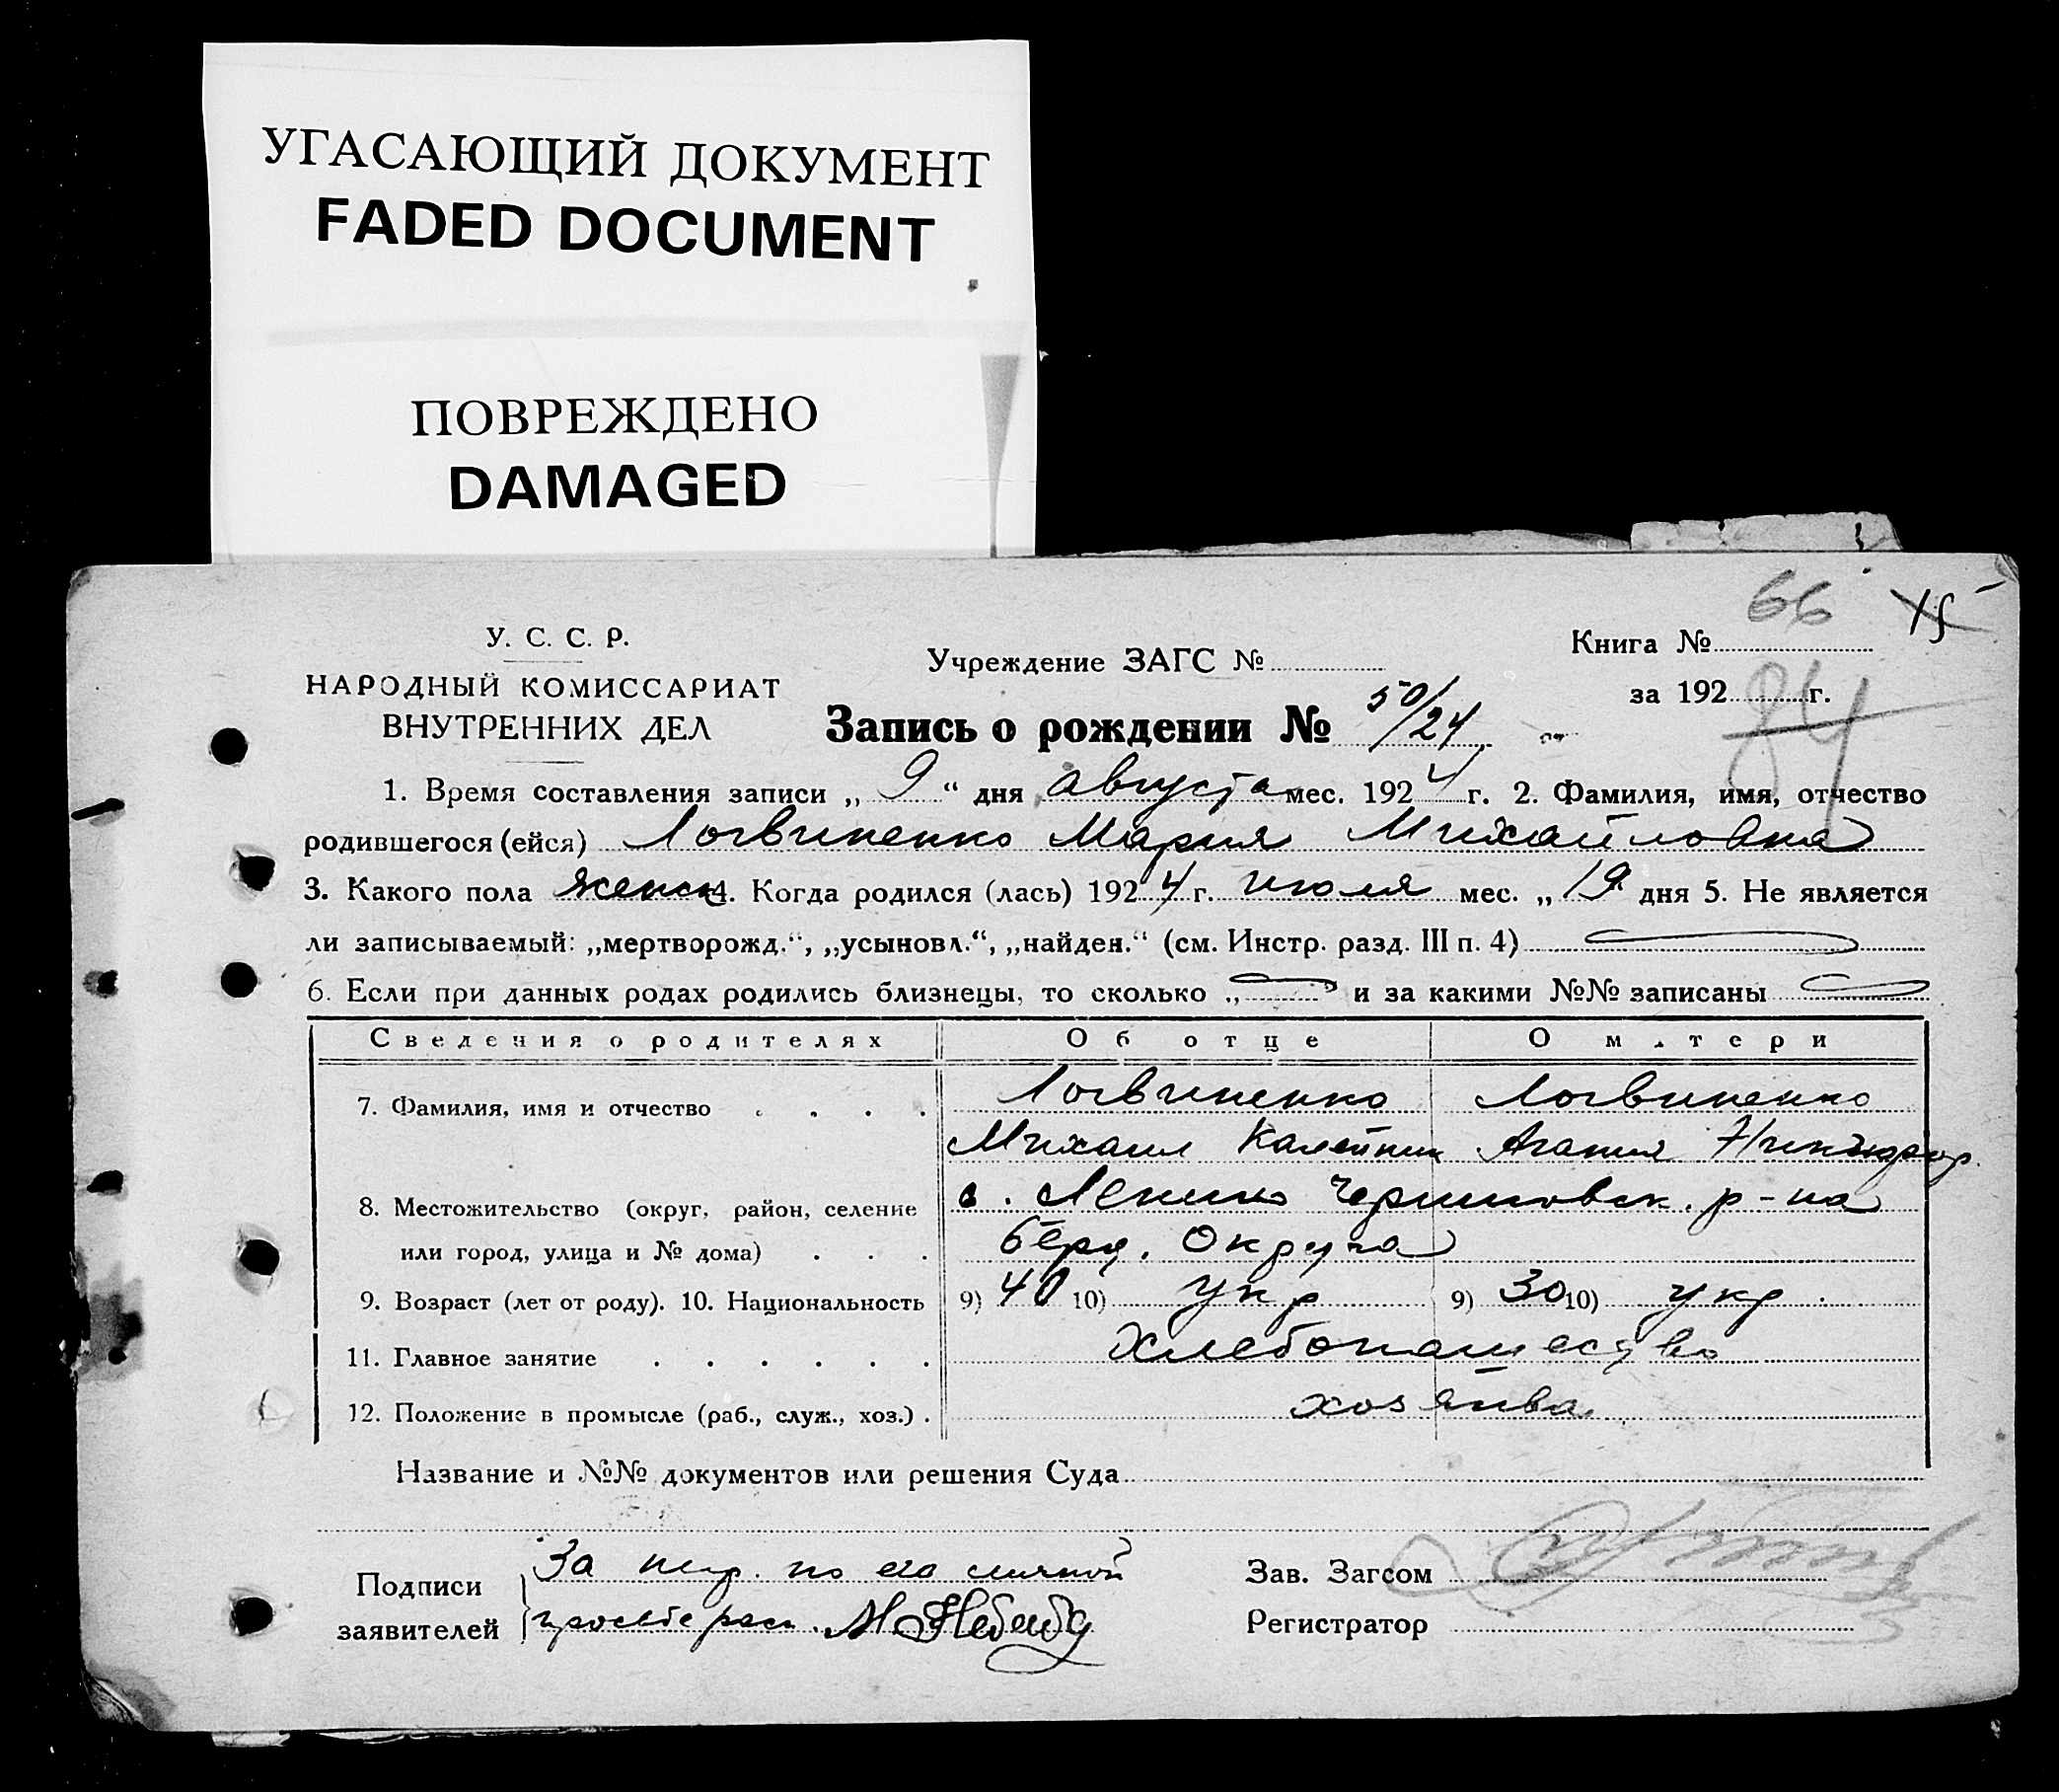 УГАСАЮЩИЙ ДОКУМЕНТ
FADED DOCUMENT
ПОВРЕЖДЕНО
DAMAGED
66
У. С. С. Р.
НАРОДНЫЙ КОМИССАРИАТ
ВНУТРЕННИХ ДЕЛ
Учреждение ЗАГС №
Книга №
за 192 г.
84
Запись о рождении № 50/24
1. Время составления записи „ 9 “ дня августа мес. 1924 г. 2. Фамилия, имя, отчество
родившегося (ейся) Логвиненко Мария Михайловна
3. Какого пола женск 4. Когда родился (лась) 1924 г. июля мес. „ 19 дня 5. Не является
ли записываемый: „мертворожд.“, „усыновл.“, „найден.“ (см. Инстр. разд. III п. 4)
6. Если при данных родах родились близнецы, то сколько „ и за какими №№ записаны
Сведения о родителях Об отце О матери
7. Фамилия, имя и отчество Логвиненко Логвиненко
Михаил Агапия Никандр.
8. Местожительство (округ, район, селение с. Ленино р-на
или город, улица и № дома) берд. Округа
9. Возраст (лет от роду). 10. Национальность 9) 40 10) укр 9) 30 10) укр.
11. Главное занятие Хлебопашество
12. Положение в промысле (раб., служ., хоз.) хозяйва
Название и №№ документов или решения Суда
Подписи За негр. по его личной
заявителей просьбе расп.
Зав. Загсом
Регистратор